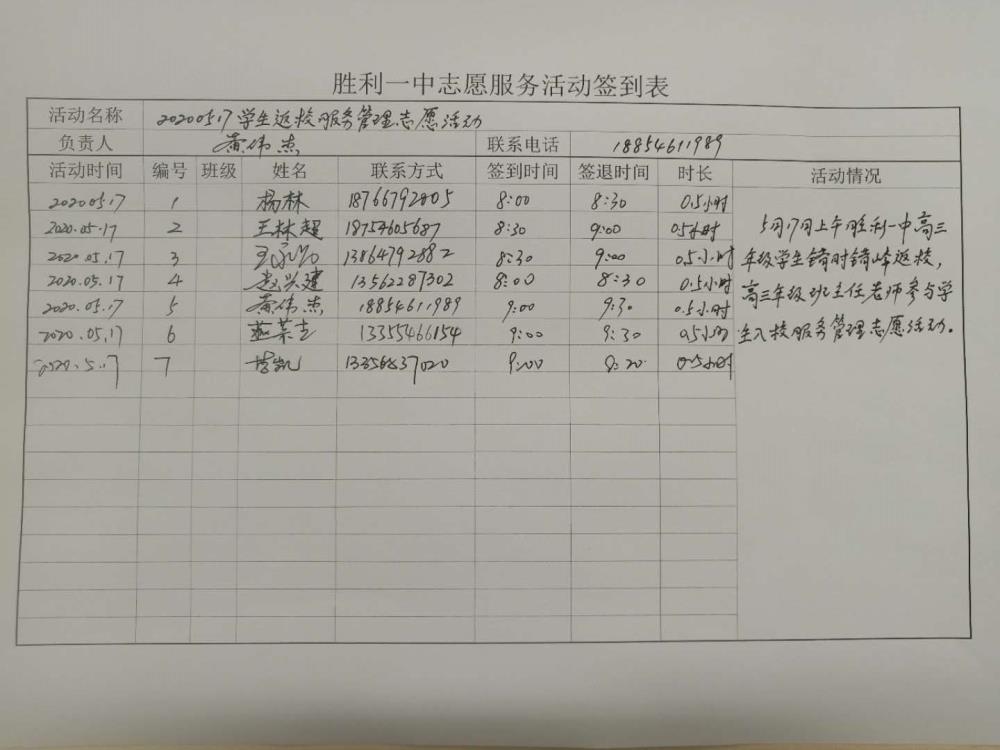 胜利一中志愿服务活动签到表
活动名称 20200517学生返校服务管理志愿活动
负责人 黄伟杰 联系电话 18854611989
活动时间 编号 班级 姓名 联系方式 签到时间 签退时间 时长 活动情况
20200517 1 杨林 18766792805 8:00 8:30 0.5小时
2020.05.17 2 王林超 18754605687 8:30 9:00 0.5小时
2020.05.17 3 13864792882 8:30 9:00 0.5小时
2020.05.17 4 赵兴建 13562287302 8:00 8:30 0.5小时
2020.05.17 5 黄伟杰 18854611989 9:00 9:30 0.5小时
2020.05.17 6 13355466154 9:00 9:30 0.5小时
2020.5.17 7 9:00 0.5小时
5月17日上午胜利一中高三
年级学生错时错峰返校,
高三年级班主任老师参与学
生入校服务管理志愿活动。